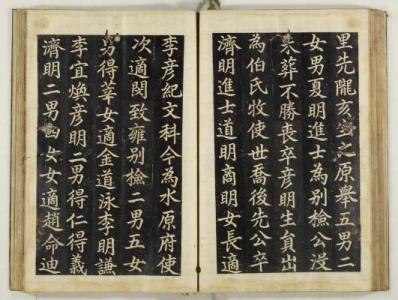 里先隴亥之原舉五男二
女男夏明進士為別檢公沒
未葬不勝喪卒彦明生貟出
為伯氏牧使世喬後先公卒
濟明進士道明商明女長適
李彦紀文科今為水原府使
次適閔致雍別檢二男五女
男得華女適金道泳李明謙
李宜煥彦明二男得仁得義
濟明二男四女女適趙命迪